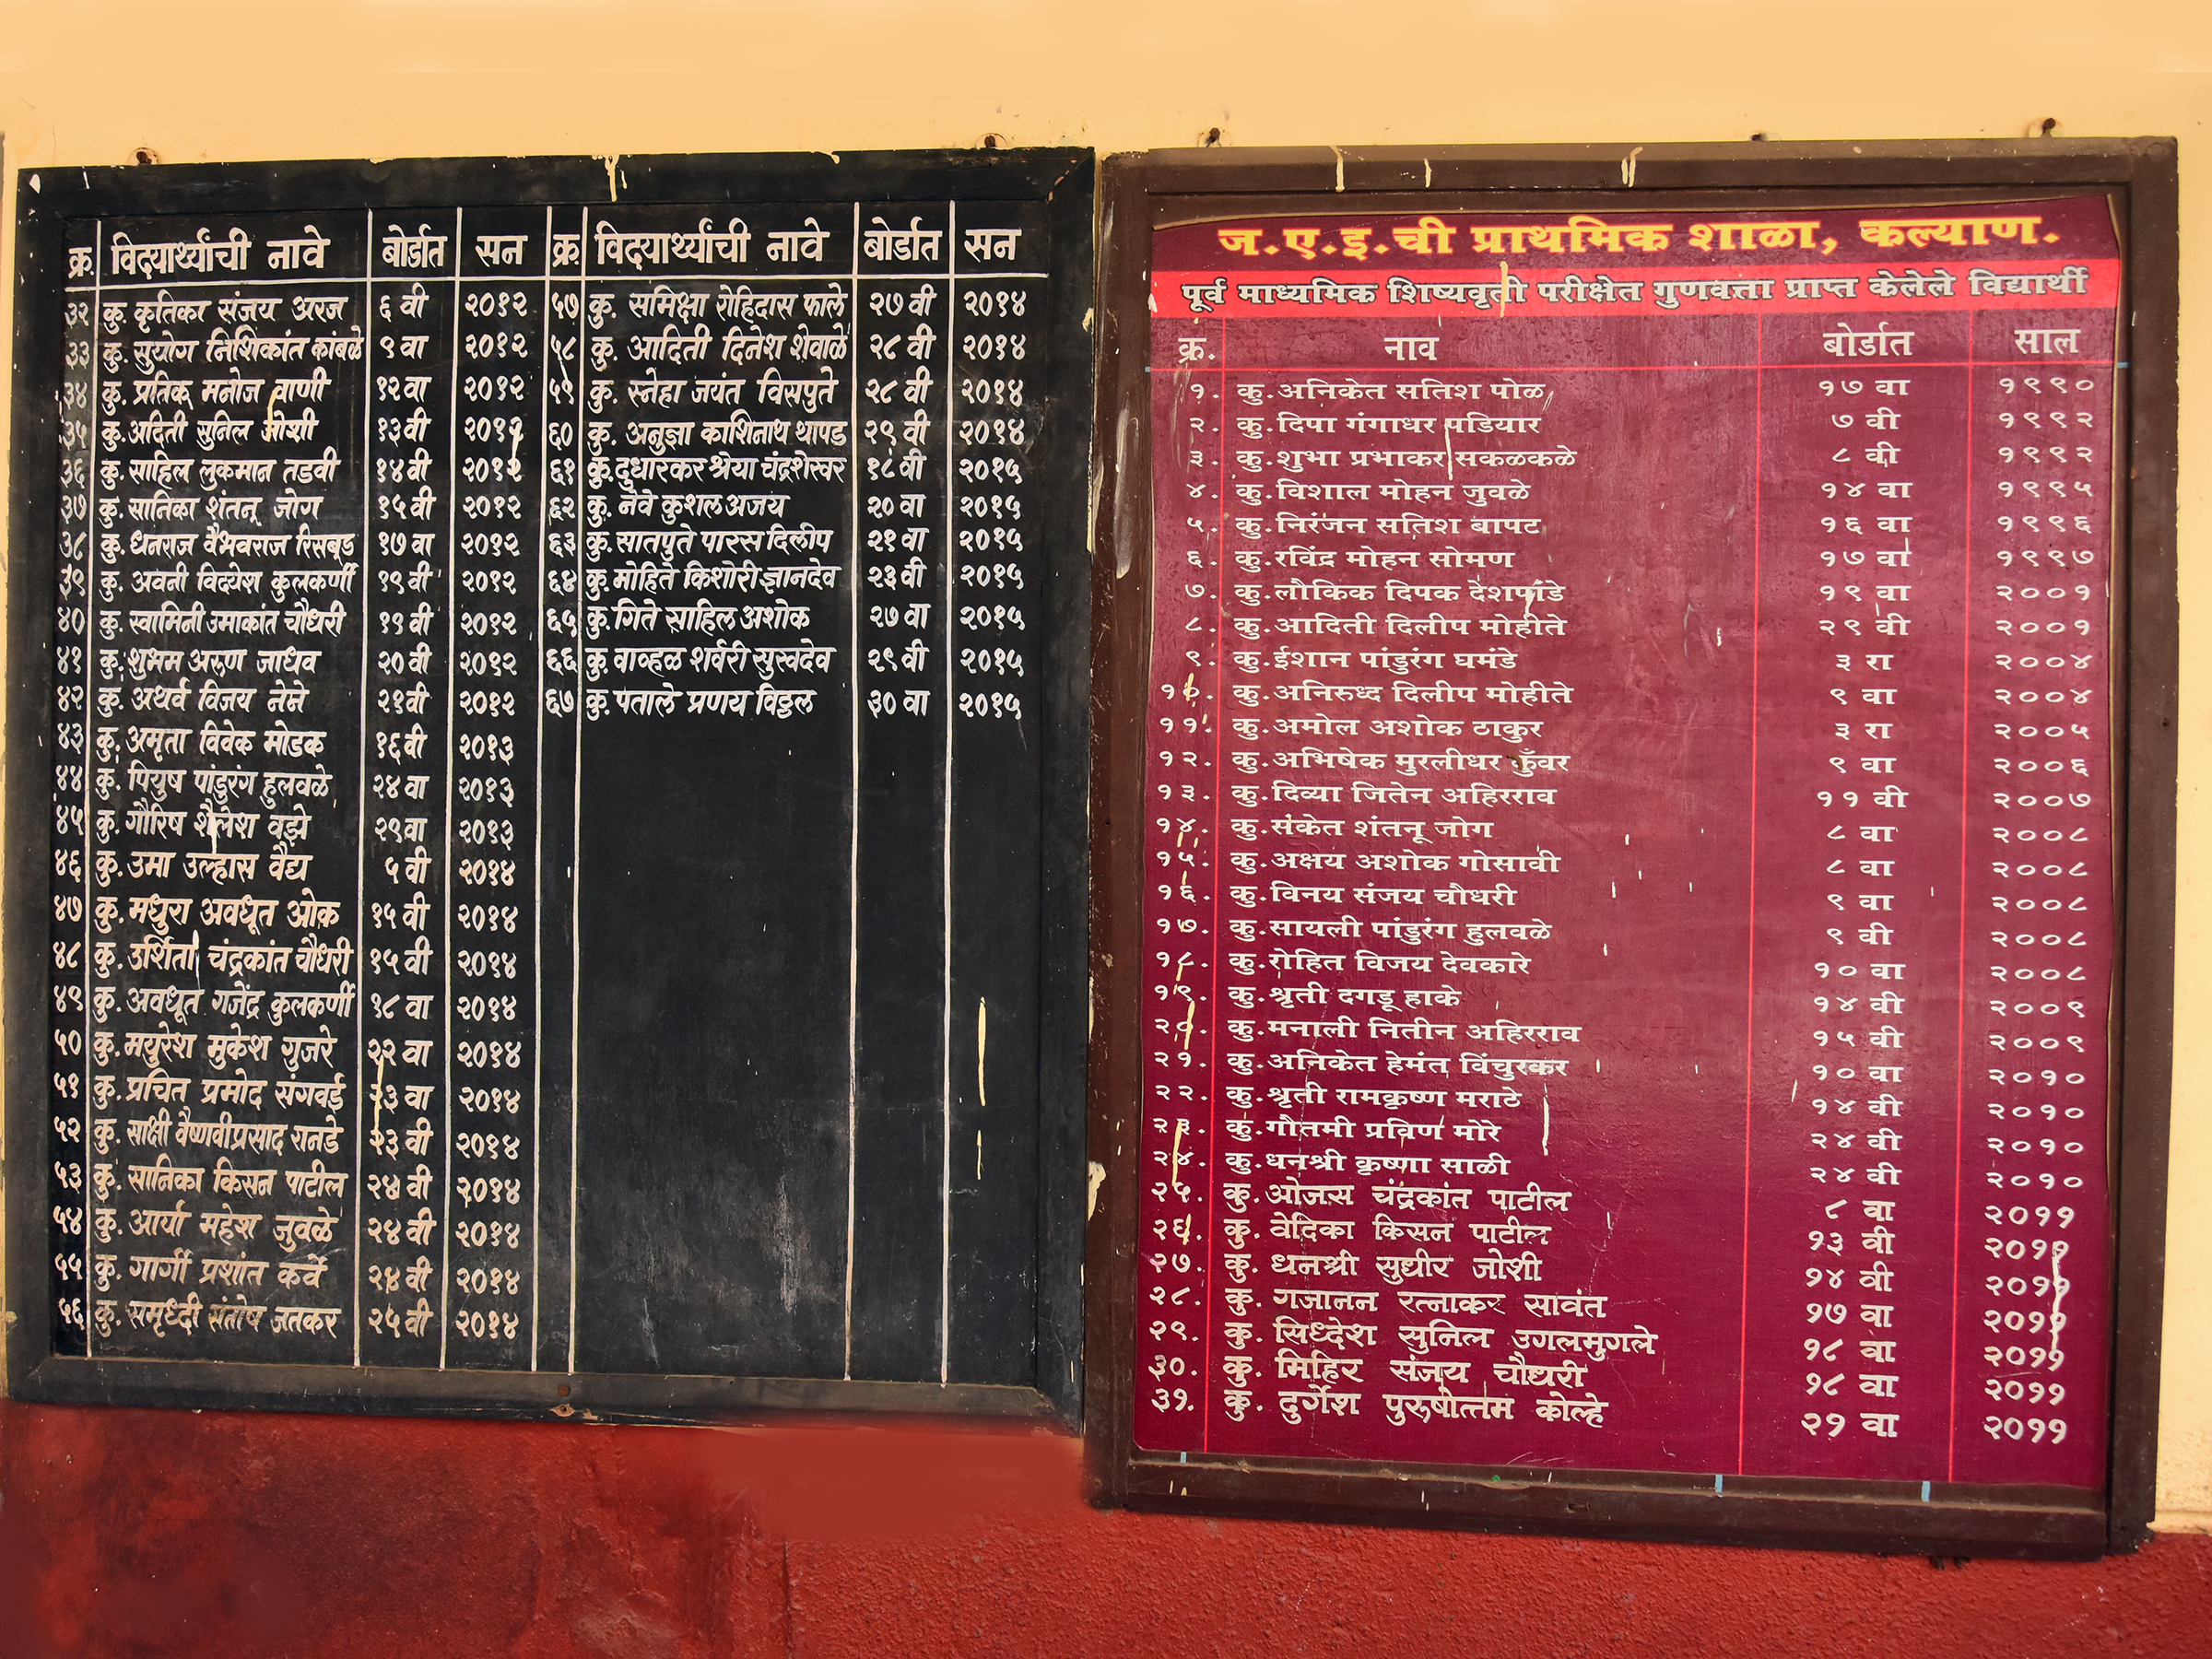 क्र. विद्यार्थ्यांची नावे बोर्डात सन
३२ कु. कृतिका संजय अरज ६ वी २०१२
३३ कु. सुयोग निशिकांत कांबळे ९ वा २०१२
३४ कु. प्रतिक मनोज वाणी १२ वा २०१२
३५ कु. अदिती सुनिल जोशी १३ वी २०१२
३६ कु. साहिल लुकमान तडवी १४ वी २०१२
३७ कु. सानिका शंतनू जोग १५ वी २०१२
३८ कु. धनराज वैभवराज रिसबूड १७ वा २०१२
३९ कु. अवनी विद्येश कुलकर्णी १९ वी २०१२
४० कु. स्वामिनी उमाकांत चौधरी १९ वी २०१२
४१ कु. शुभम अरुण जाधव २० वी २०१२
४२ कु. अथर्व विजय नेने २१ वी २०१२
४३ कु. अमृता विवेक मोडक १६ वी २०१३
४४ कु. पियुष पांडुरंग हुलवळे २४ वा २०१३
४५ कु. गौरिष शैलेश वझे २९ वा २०१३
४६ कु. उमा उल्हास वैद्य ५ वी २०१४
४७ कु. मधुरा अवधूत ओक १५ वी २०१४
४८ कु. उर्शिता चंद्रकांत चौधरी १५ वी २०१४
४९ कु. अवधूत गजेंद्र कुलकर्णी १८ वा २०१४
५० कु. मयुरेश मुकेश गुजरे २२ वा २०१४
५१ कु. प्रचित प्रमोद संगवई २३ वा २०१४
५२ कु. साक्षी वैष्णवीप्रसाद रानडे २३ वी २०१४
५३ कु. सानिका किसन पाटील २४ वी २०१४
५४ कु. आर्या महेश जुवळे २४ वी २०१४
५५ कु. गार्गी प्रशांत कर्वे २४ वी २०१४
५६ कु. समृध्दी संतोष जतकर २५ वी २०१४
क्र. विद्यार्थ्यांची नावे बोर्डात सन
५७ कु. समिक्षा रोहिदास फाले २७ वी २०१४
५८ कु. आदिती दिनेश शेवाळे २८ वी २०१४
५९ कु. स्नेहा जयंत विसपुते २८ वी २०१४
६० कु. अनुज्ञा काशिनाथ थापड २९ वी २०१४
६१ कु. दुधारकर श्रेया चंद्रशेखर १८ वी २०१५
६२ कु. नेवे कुशल अजय २० वा २०१५
६३ कु. सातपुते पारस दिलीप २१ वा २०१५
६४ कु. मोहिते किशोरी ज्ञानदेव २३ वी २०१५
६५ कु. गिते साहिल अशोक २७ वा २०१५
६६ कु. वाव्हळ शर्वरी सुखदेव २९ वी २०१५
६७ कु. पताले प्रणय विठ्ठल ३० वा २०१५
ज.ए.इ.ची प्राथमिक शाळा, कल्याण.
पूर्व माध्यमिक शिष्यवृती परीक्षेत गुणवत्ता प्राप्त केलेले विद्यार्थी
क्र. नाव बोर्डात साल
१. कु.अनिकेत सतिश पोळ १७ वा १९९०
२. कु.दिपा गंगाधर पडियार ७ वी १९९२
३. कु.शुभा प्रभाकर सकळकळे ८ वी १९९२
४. कु.विशाल मोहन जुवळे १४ वा १९९५
५. कु.निरंजन सतिश बापट १६ वा १९९६
६. कु.रविंद्र मोहन सोमण १७ वा १९९७
७. कु.लौकिक दिपक देशपांडे १९ वा २००१
८. कु.आदिती दिलीप मोहीते २९ वी २००१
९. कु.ईशान पांडुरंग घमंडे ३ रा २००४
१०. कु.अनिरुध्द दिलीप मोहीते ९ वा २००४
११. कु.अमोल अशोक ठाकुर ३ रा २००५
१२. कु.अभिषेक मुरलीधर कुँवर ९ वा २००६
१३. कु.दिव्या जितेन अहिरराव ११ वी २००७
१४. कु.संकेत शंतनू जोग ८ वा २००८
१५. कु.अक्षय अशोक गोसावी ८ वा २००८
१६. कु.विनय संजय चौधरी ९ वा २००८
१७. कु.सायली पांडुरंग हुलवळे ९ वी २००८
१८. कु.रोहित विजय देवकारे १० वा २००८
१९. कु.श्रृती दगडू हाके १४ वी २००९
२०. कु.मनाली नितीन अहिरराव १५ वी २००९
२१. कु.अनिकेत हेमंत विंचुरकर १० वा २०१०
२२. कु.श्रृती रामकृष्ण मराठे १४ वी २०१०
२३. कु.गौतमी प्रविण मोरे २४ वी २०१०
२४. कु.धनश्री कृष्णा साळी २४ वी २०१०
२५. कु. ओजस चंद्रकांत पाटील ८ वा २०११
२६. कु. वेदिका किसन पाटील १३ वी २०११
२७. कु. धनश्री सुधीर जोशी १४ वी २०११
२८. कु. गजानन रत्नाकर सावंत १७ वा २०११
२९. कु. सिध्देश सुनिल उगलमुगले १८ वा २०११
३०. कु. मिहिर संजय चौधरी १८ वा २०११
३१. कु. दुर्गेश पुरुषोत्तम कोल्हे २१ वा २०११